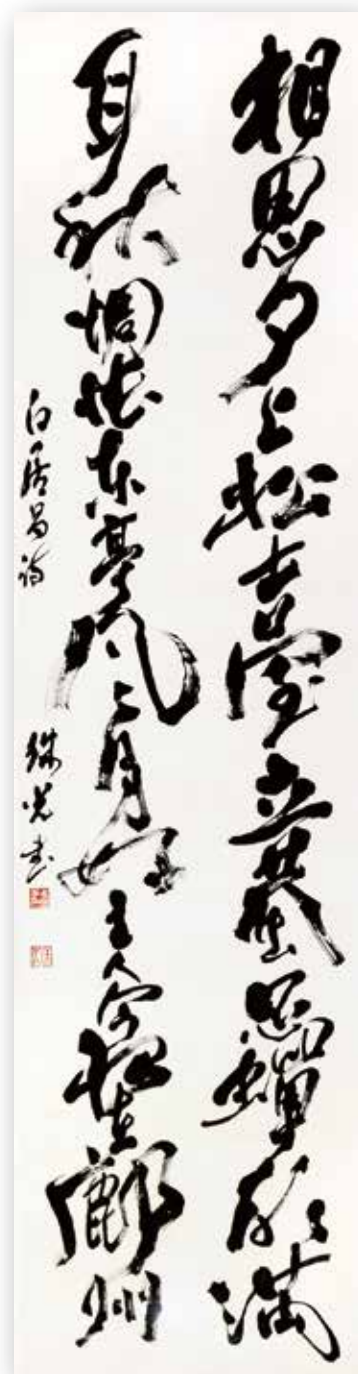 相思夕上松臺立蛩思蟬聲滿
耳秋惆悵东亭风月好主人今夜在鄜州
白居易诗
光书